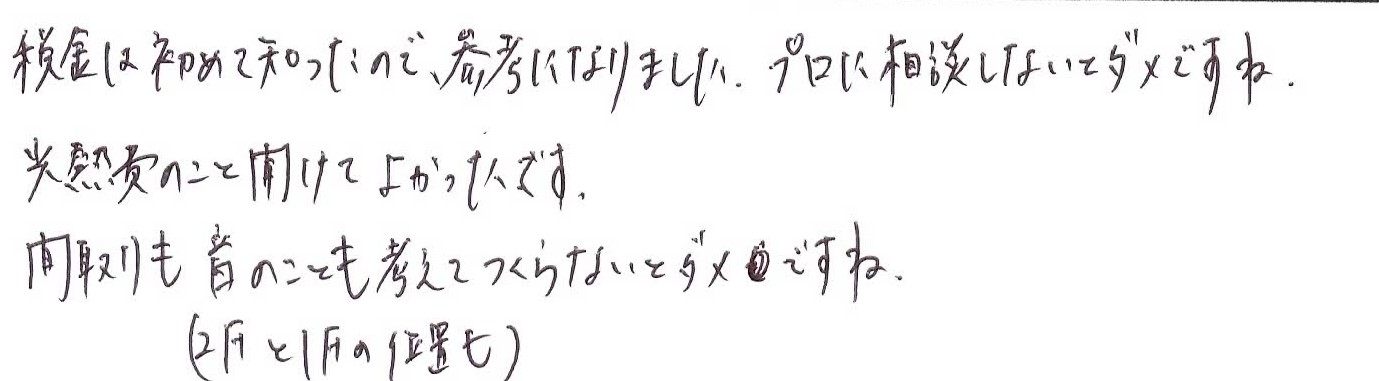 税金は初めて知ったので、参考になりました。プロに相談しないとダメですね.
光熱費のこと聞けてよかったです.
間取りも音のことも考えてつくらないとダメですね.
(2Fと1Fの位置も)